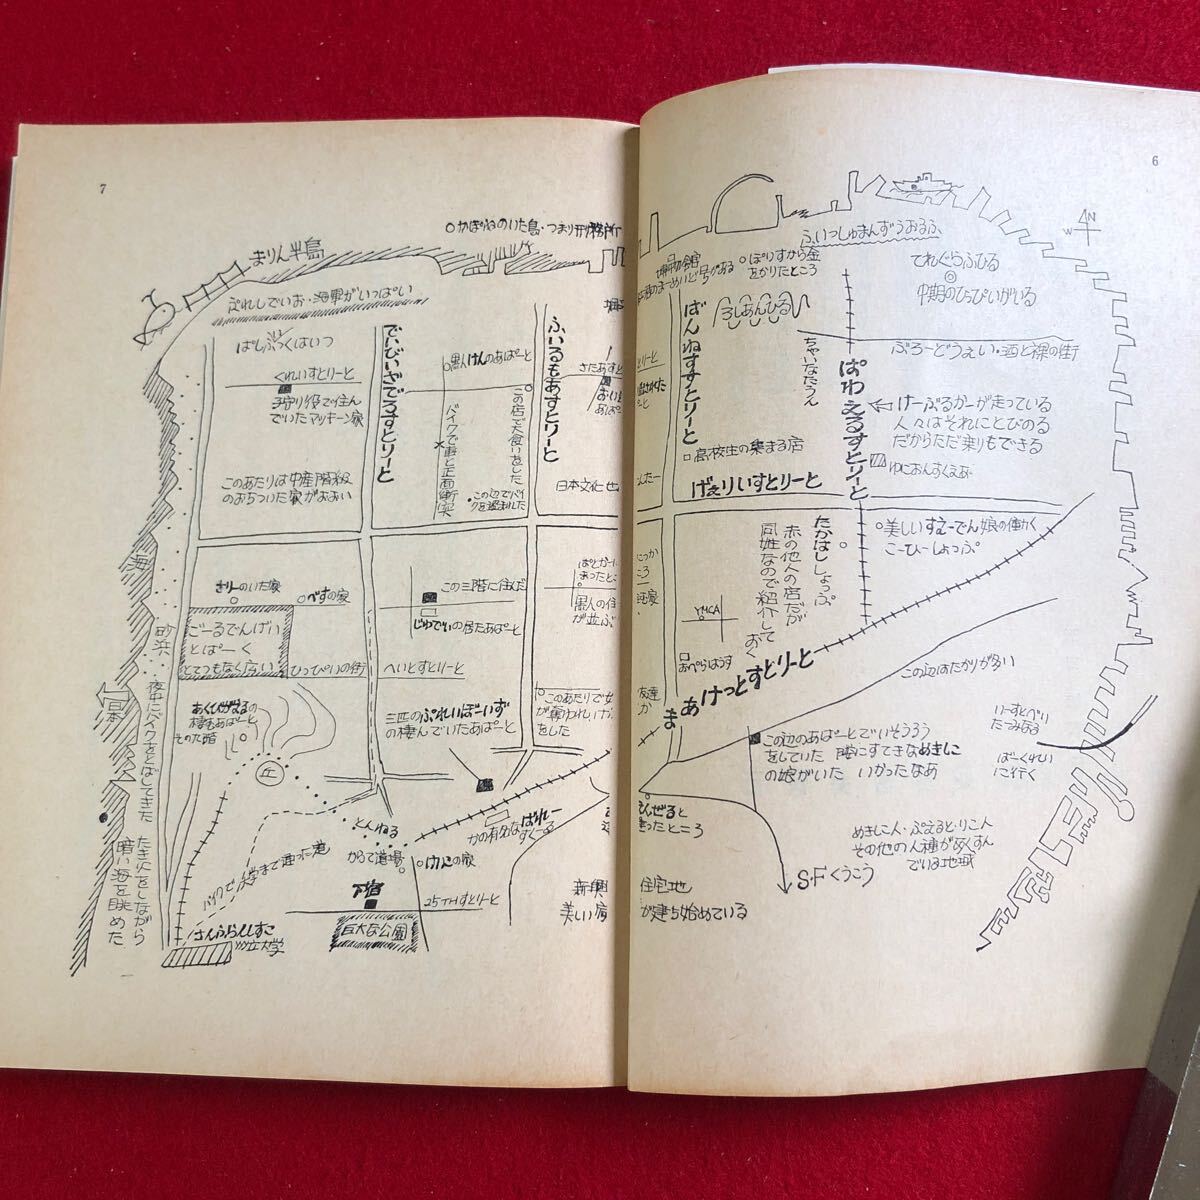 6
ふぃっしゅまんずうおるふ
N
W
てれぐらふひる
中期のひっぴいがいる
ぽりすから金
をかりたところ
ぶろーどうぇい・酒と裸の街
ちゃいなたうん
ばんねすすとりーと
ぱわえるすとりーと
けーぶるかーが走っている
人々はそれにとびのる
だからただ乗りもできる
ゆにおんすくえあ
高校生の集まる店
げぇりいすとりーと
美しいすえーでん娘の働く
こーひーしょっぷ
たかはししょっぷ
赤の他人の店だが
同姓なので紹介して
おく
YMCA
おぺらはうす
まあけっとすとりーと
この辺はたかりが多い
いーすとべい
たーみなる
ばーくれい
に行く
この辺のあぱーとでいそうろう
をしていた 隣にすてきなめきしこ
の娘がいた いかったなあ
めきしこ人・ぷえるとりこ人
その他の人種がめくすん
でいる地域
S・Fくうこう
住宅地
が建ち始めている
7
かぽねのいた島・つまり刑務所
まりん半島
ぷれしでぃお・海軍がいっぱい
ぱしふぃっくはいつ
くれいすとりーと
子守り役で住ん
でいたマッキーン家
このあたりは中産階級
のおちついた家がおおい
でぃびいざでろすとりーと
黒人けんのあぱーと
バイクで車と正面衝突
この店で大食いをした
この辺でバイ
クを盗まれた
ふぃるもあすとりーと
日本文化
海
日本
砂浜
さりーのいた家
べすの家
ごーるでんげい
とぱーく
とてつもなく広い
ひっぴいの街
へいとすとりーと
この三階に住んだ
じゅでぃの居たあぱーと
黒人の住
が並ぶ
三匹のぷれいぼーいず
の棲んでいたあぱーと
このあたりで女
をした
夜中にバイクをとばしてきた
たき火をしながら
暗い海を眺めた
丘
とんねる
からて道場
かの有名なばれー
すくーる
下宿
25THすとりーと
巨大な公園
バイクで大学まで通った道
さんふらんしすこ
州立大学
新興
美しい